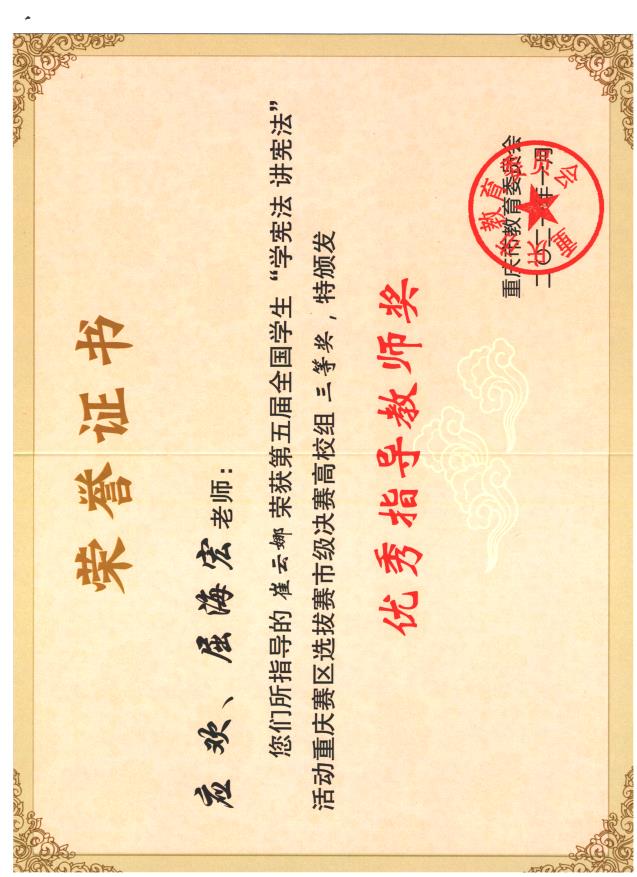 荣誉证书
应欢、屈海宏老师：
您们所指导的 崔云娜 荣获第五届全国学生“学宪法 讲宪法”
活动重庆赛区选拔赛市级决赛高校组 三等奖，特颁发
优秀指导教师奖
重庆市教育委员会
二〇二一年一月